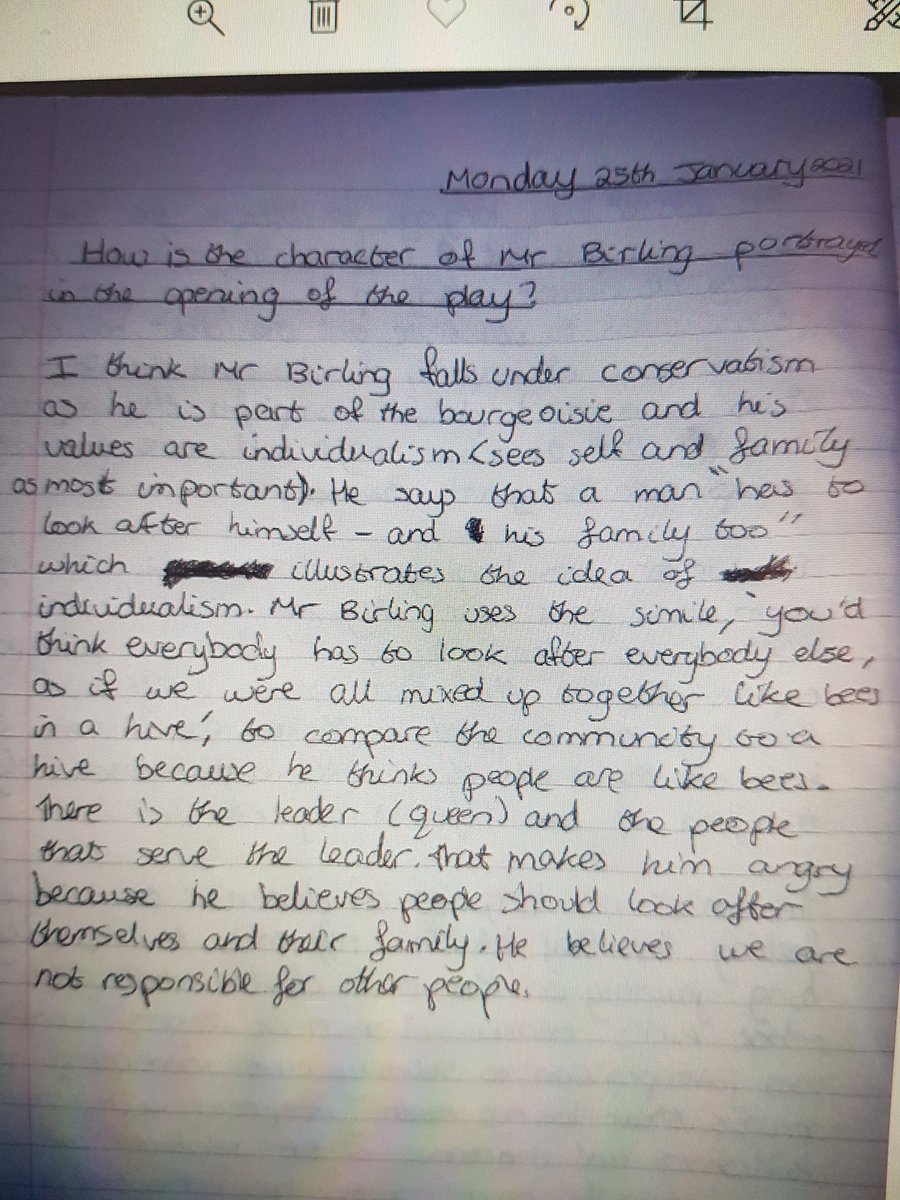 Monday 25th January 2021
How is the character of Mr Birling portrayed
in the opening of the play?
I think Mr Birling falls under conservatism
as he is part of the bourgeoisie and his
values are individualism (sees self and family
as most important). He says that a man "has to
look after himself - and his family too"
which illustrates the idea of
individualism. Mr Birling uses the simile, 'you'd
think everybody has to look after everybody else,
as if we were all mixed up together like bees
in a hive', to compare the community to a
hive because he thinks people are like bees.
There is the leader (queen) and the people
thats serve the leader. That makes him angry
because he believes people should look after
themselves and their family. He believes we are
not responsible for other people.